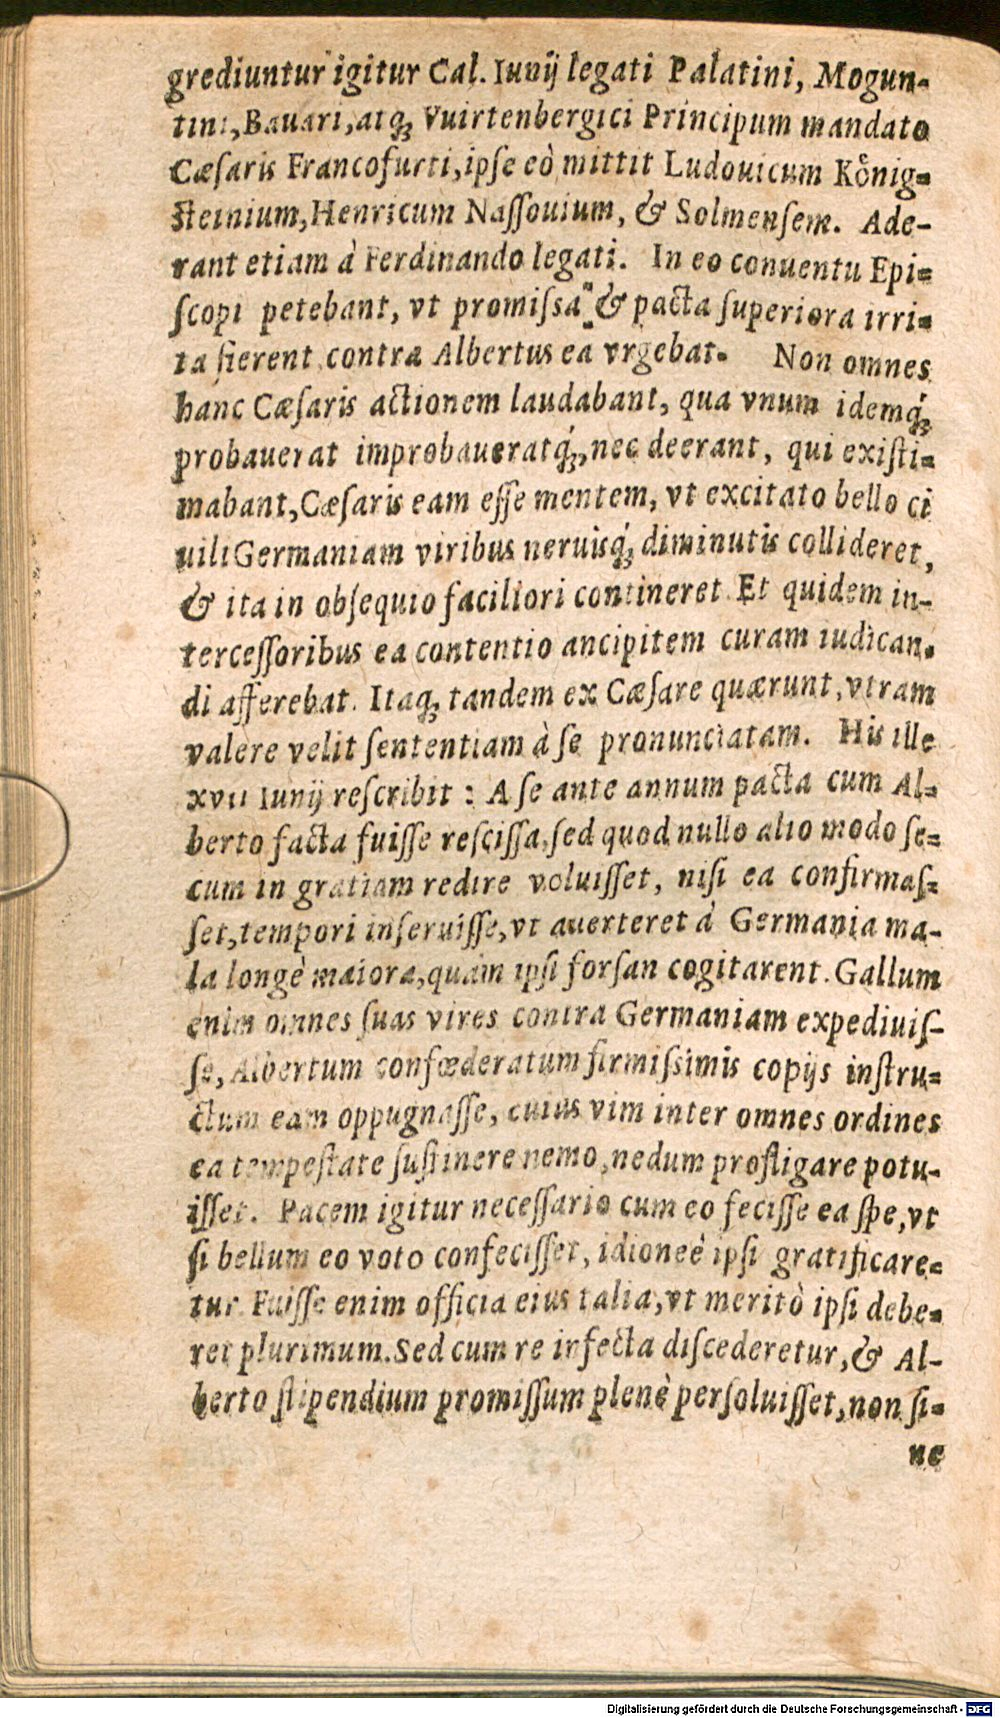 grediuntur igitur Cal. Iunij legati Palatini, Mogun-
tini, Bauari, atq; Vuirtenbergici Principum mandato
Cæſaris Francofurti, ipſe eò mittit Ludouicum Kőnig=
ſteinium, Henricum Naſſouium, & Solmenſem. Ade-
rant etiam à Ferdinando legati. In eo conuentu Epi=
ſcopi petebant, vt promiſſa & pacta ſuperiora irri=
ta fierent contra Albertus ea vrgebat. Non omnes
hanc Cæſaris actionem laudabant, qua vnum idemq́;
probauerat improbaueratq́;, nec deerant, qui exiſti=
mabant, Cæſaris eam eſſe mentem, vt excitato bello ci
uili Germaniam viribus neruisq́; diminutis collideret,
& ita in obſequio faciliori contineret. Et quidem in-
terceſſoribus ea contentio ancipitem curam iudican-
di afferebat. Itaq; tandem ex Cæſare quærunt, vtram
valere velit ſententiam à ſe pronunciatam. His ille
xvii Iunij reſcribit : A ſe ante annum pacta cum Al=
berto facta fuiſſe reſciſſa, ſed quod nullo alio modo ſe=
cum in gratiam redire voluiſſet, niſi ea confirmaſ=
ſet, tempori inſeruiſſe, vt auerteret à Germania ma-
la longè maiora, quàm ipſi forſan cogitarent. Gallum
enim omnes ſuas vires contra Germaniam expediuiſ-
ſe, Albertum confœderatum firmiſsimis copijs inſtru=
ctum eam oppugnaſſe, cuius vim inter omnes ordines
ea tempeſtate ſuſtinere nemo, nedum profligare potu-
iſſet. Pacem igitur neceſſario cum eo feciſſe ea ſpe, vt
ſi bellum eo voto confeciſſet, idioneè ipſi gratificare=
tur. Fuiſſe enim officia eius talia, vt meritò ipſi debe=
ret plurimum. Sed cum re infecta diſcederetur, & Al-
berto ſtipendium promiſſum plenè perſoluiſſet, non ſi=
ne
Digitalisierung gefördert durch die Deutsche Forschungsgemeinschaft - DFG